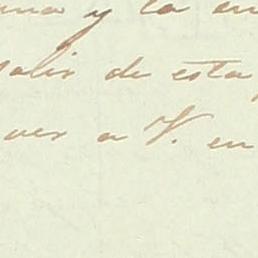 y la en
salir de esta
ver a V. en